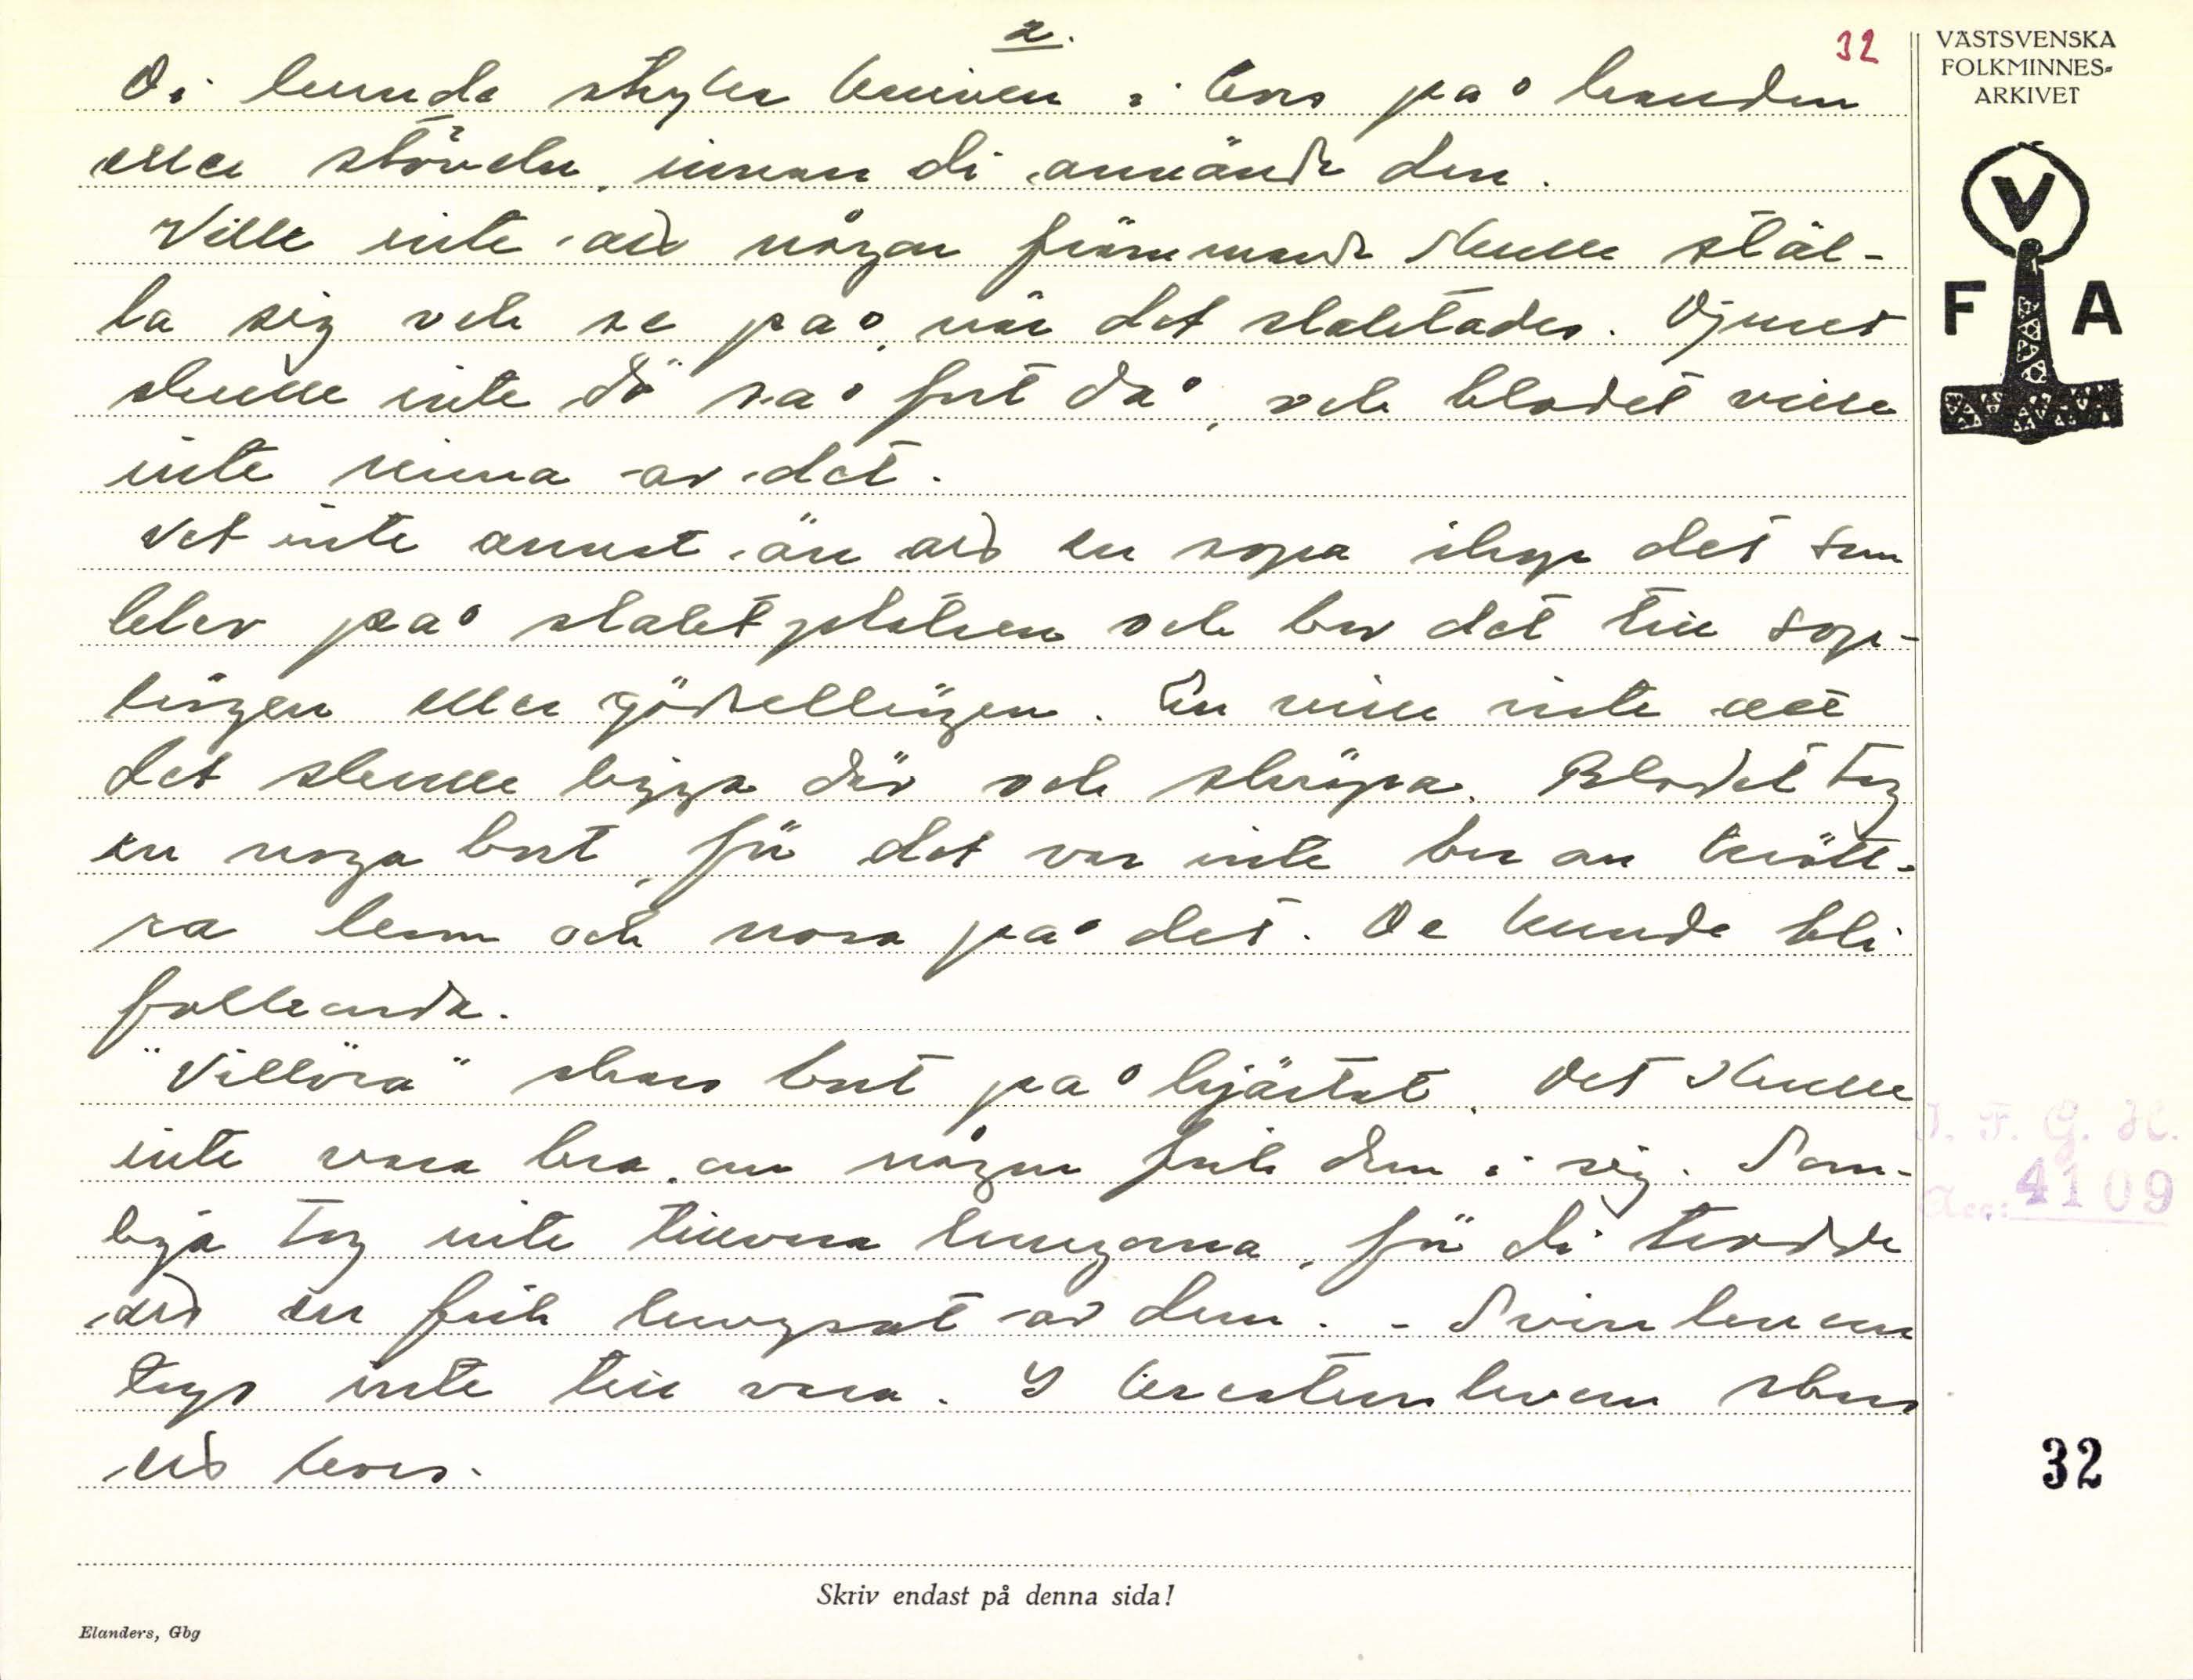 2.
32
Di kunde stryka kniven i kors på handen
eller stöveln, innan di använde den.
Ville inte att någon främmande skulle stäl-
la sig och se på, när det slaktades. Djuret
skulle inte dö så fort då, och blodet ville
inte rinna av det.
Vet inte annat än att en sopa ihop det som
blev på slaktplatsen och bar det till sop-
högen eller gödselhögen. En ville inte att
det skulle ligga där och skräpa. Blodet tog
en noga bort, för det var inte bra om kritt-
ra kom och nosa på det. De kunde bli
folkeanda.
"Villöra" skars bort på hjärtat. Det skulle
inte vara bra, om någon fick dem i sig. Som-
liga tog inte tillvara lungorna, för di trodde
att en fick lungsot av dem. - Svinlever
togs inte till vara. I kreaturslevern skars
ett kors.
Skriv endast på denna sida!
Elanders, Gbg
VÄSTSVENSKA
FOLKMINNES-
ARKIVET
V
F A
I. F. G. H.
Acc: 4109
32